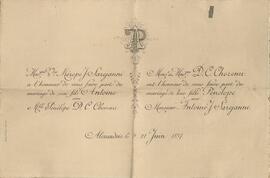 Mme Vve Kérope J. Saryanni
a l'honneur de vous faire part du
mariage de son fils Antoine
avec
Mlle Pénélope D. C. Choremi
Mr & Mme D. C. Choremi
ont l'honneur de vous faire part du
mariage de leur fille Pénélope
avec
Monsieur Antoine J. Saryanni
Alexandrie le 21 Juin